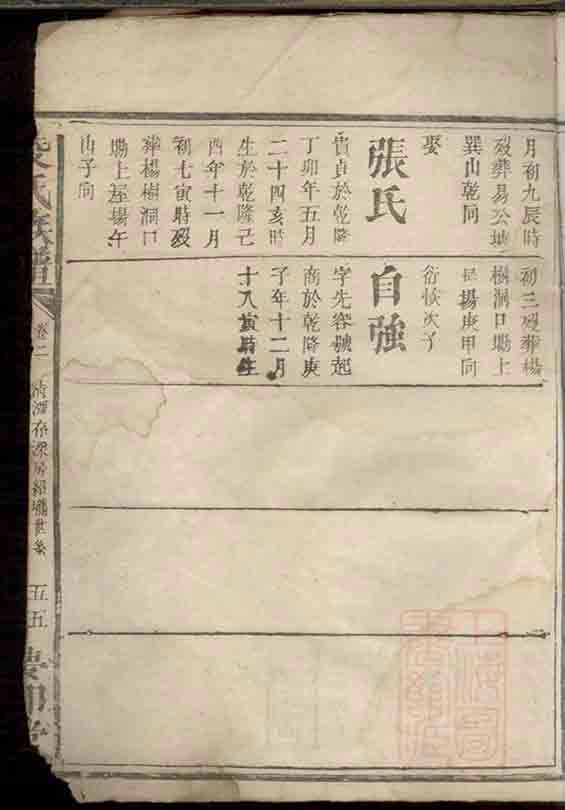 月初九辰時
歿葬易公塘
巽山乾向
娶
張氏
貴貞於乾隆
丁卯年五月
二十四亥時
生於乾隆己
酉年十一月
初七寅時歿
葬楊樹洞口
塝上屋場午
山子向
初三歿葬楊
樹洞口塝上
屋場庚甲向
衍俠次子
自強
字先容號起
商於乾隆庚
子年十二月
十八寅時生
氏族譜
卷二
五五